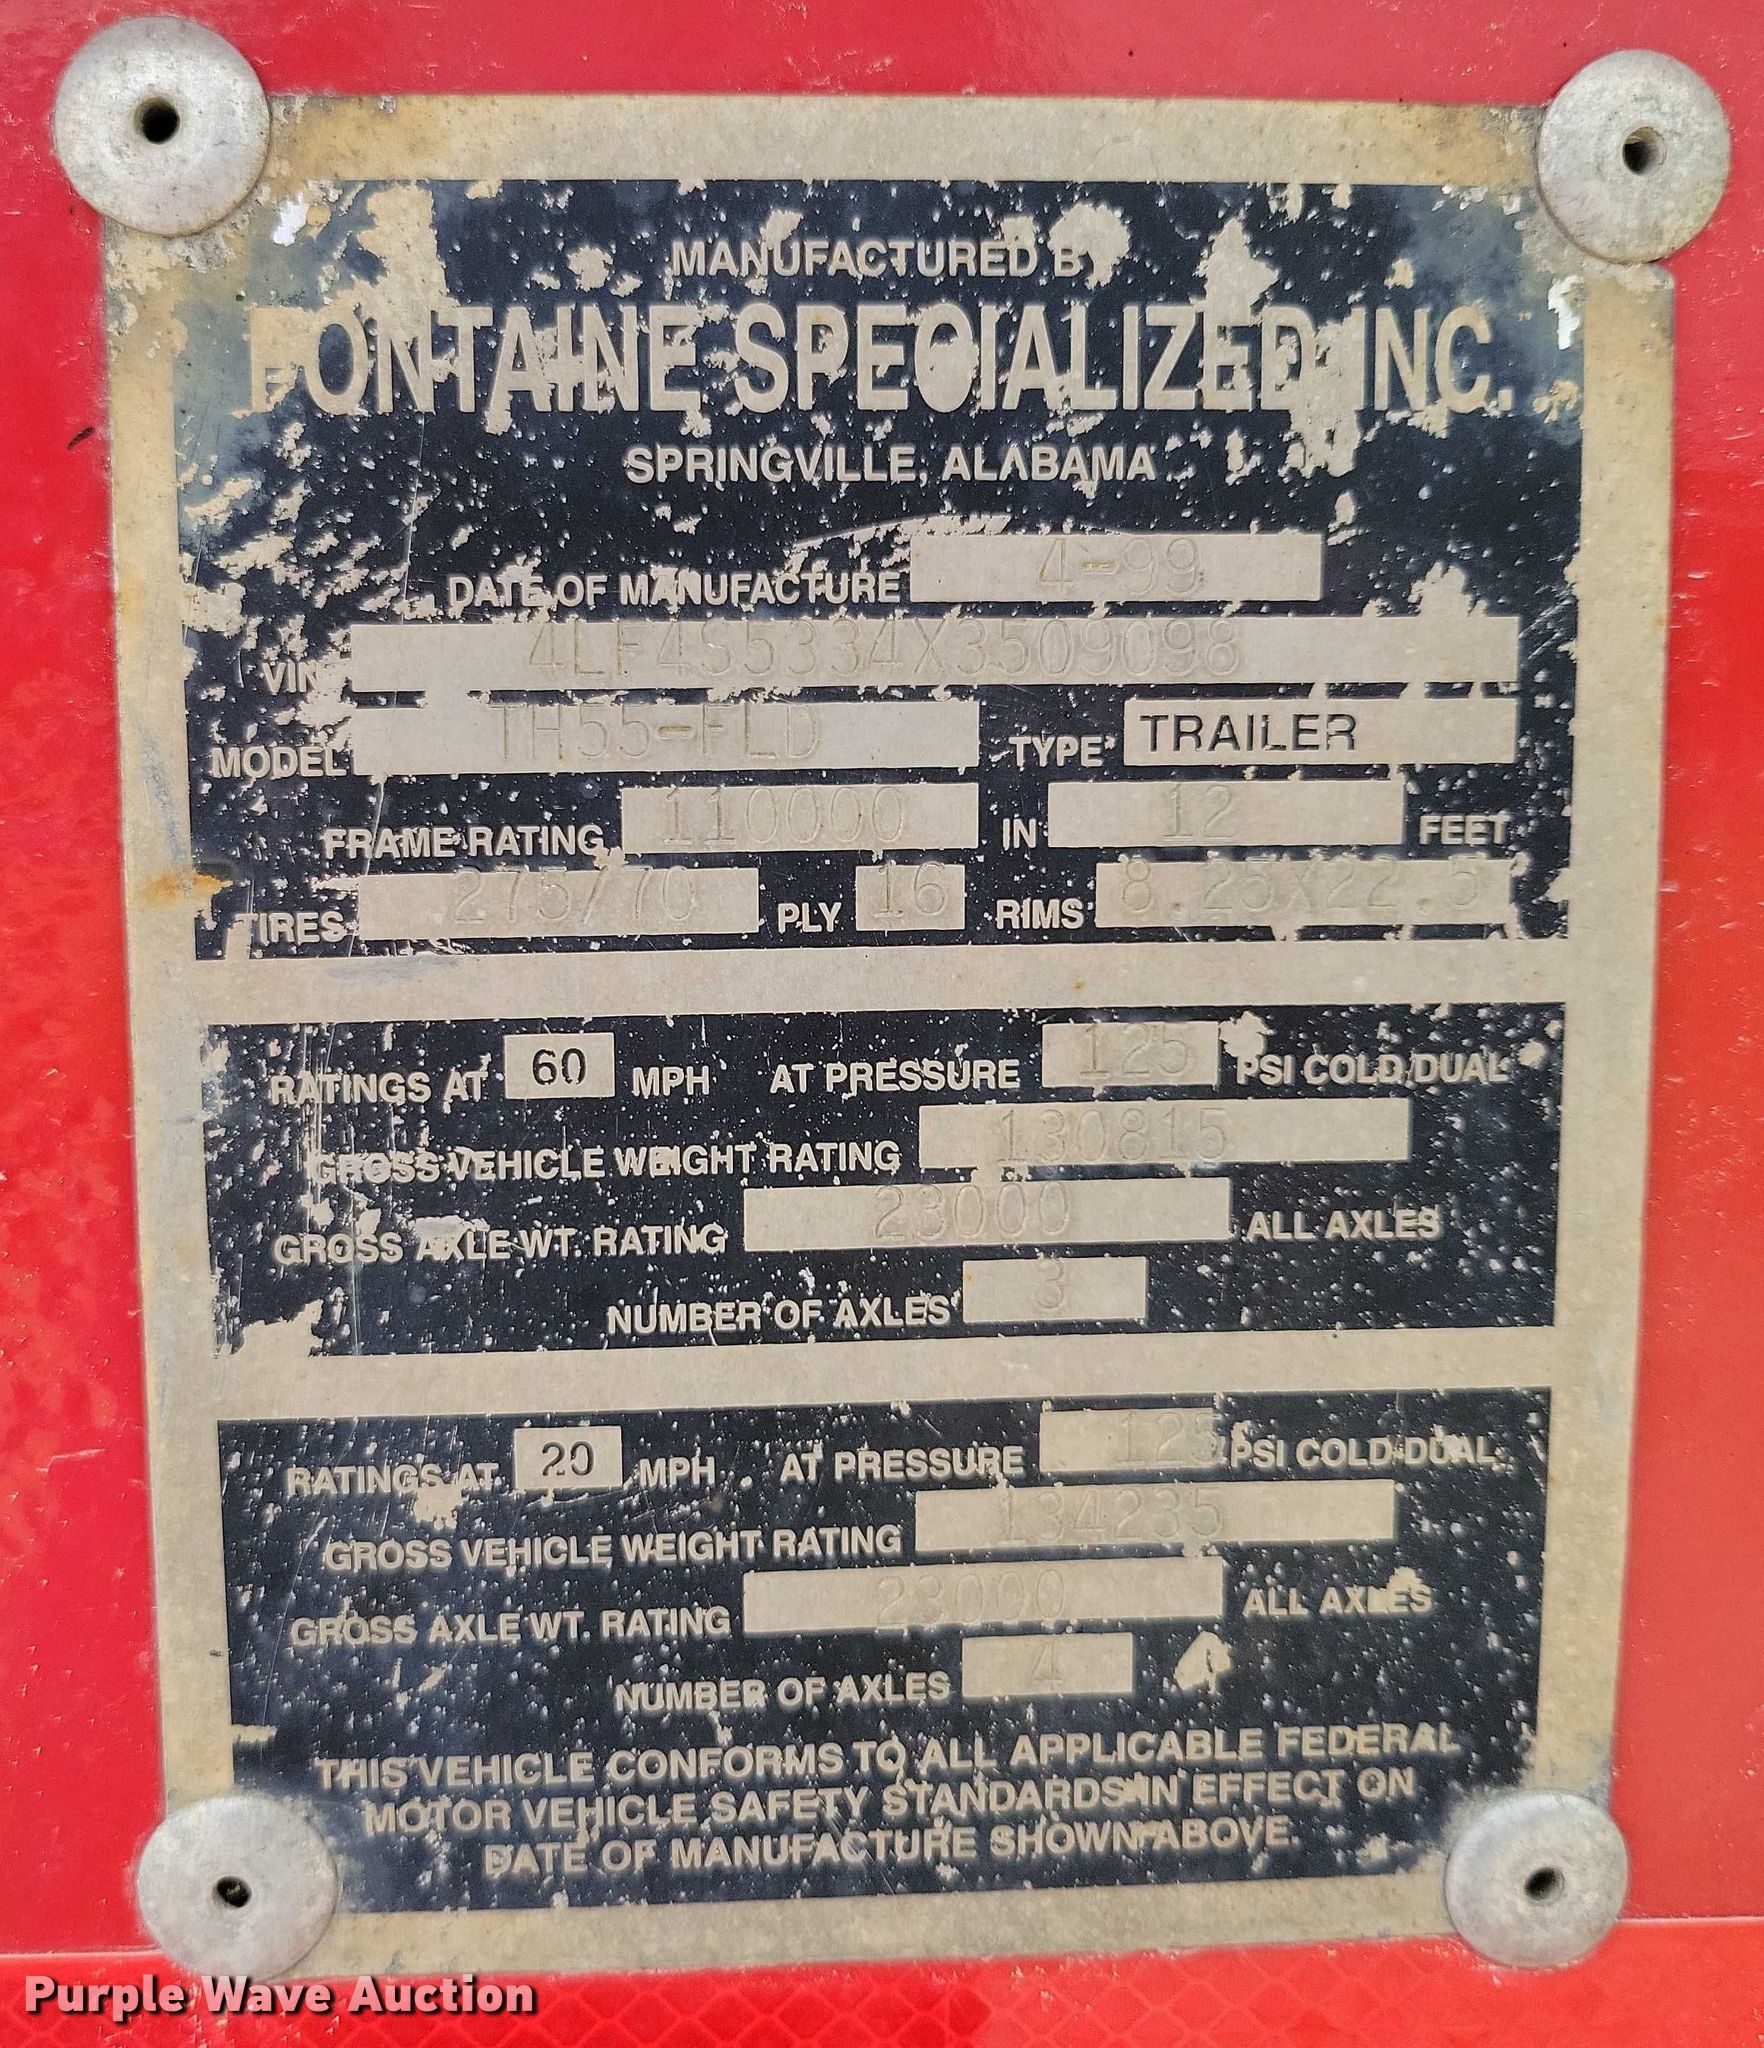 MANUFACTURED BY
FONTAINE SPECIALIZED INC.
SPRINGVILLE, ALABAMA
DATE OF MANUFACTURE 4-99
VIN 4LF4S5334X3509098
MODEL TH55-FLD TYPE TRAILER
FRAME RATING 110000 IN 12 FEET
TIRES 275/70 PLY 16 RIMS 8.25X22.5
RATINGS AT 60 MPH AT PRESSURE 125 PSI COLD DUAL
GROSS VEHICLE WEIGHT RATING 130815
GROSS AXLE WT. RATING 23000 ALL AXLES
NUMBER OF AXLES 3
RATINGS AT 20 MPH AT PRESSURE 125 PSI COLD DUAL
GROSS VEHICLE WEIGHT RATING 134235
GROSS AXLE WT. RATING 23000 ALL AXLES
NUMBER OF AXLES 4
THIS VEHICLE CONFORMS TO ALL APPLICABLE FEDERAL
MOTOR VEHICLE SAFETY STANDARDS IN EFFECT ON
DATE OF MANUFACTURE SHOWN ABOVE.
Purple Wave Auction